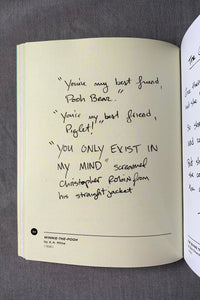 "You're my best friend,
Pooh Bear."
"You're my best friend,
Piglet!"
"YOU ONLY EXIST IN
MY MIND" screamed
Christopher Robin from
his straightjacket
WINNIE-THE-POOH
by A. A. Milne